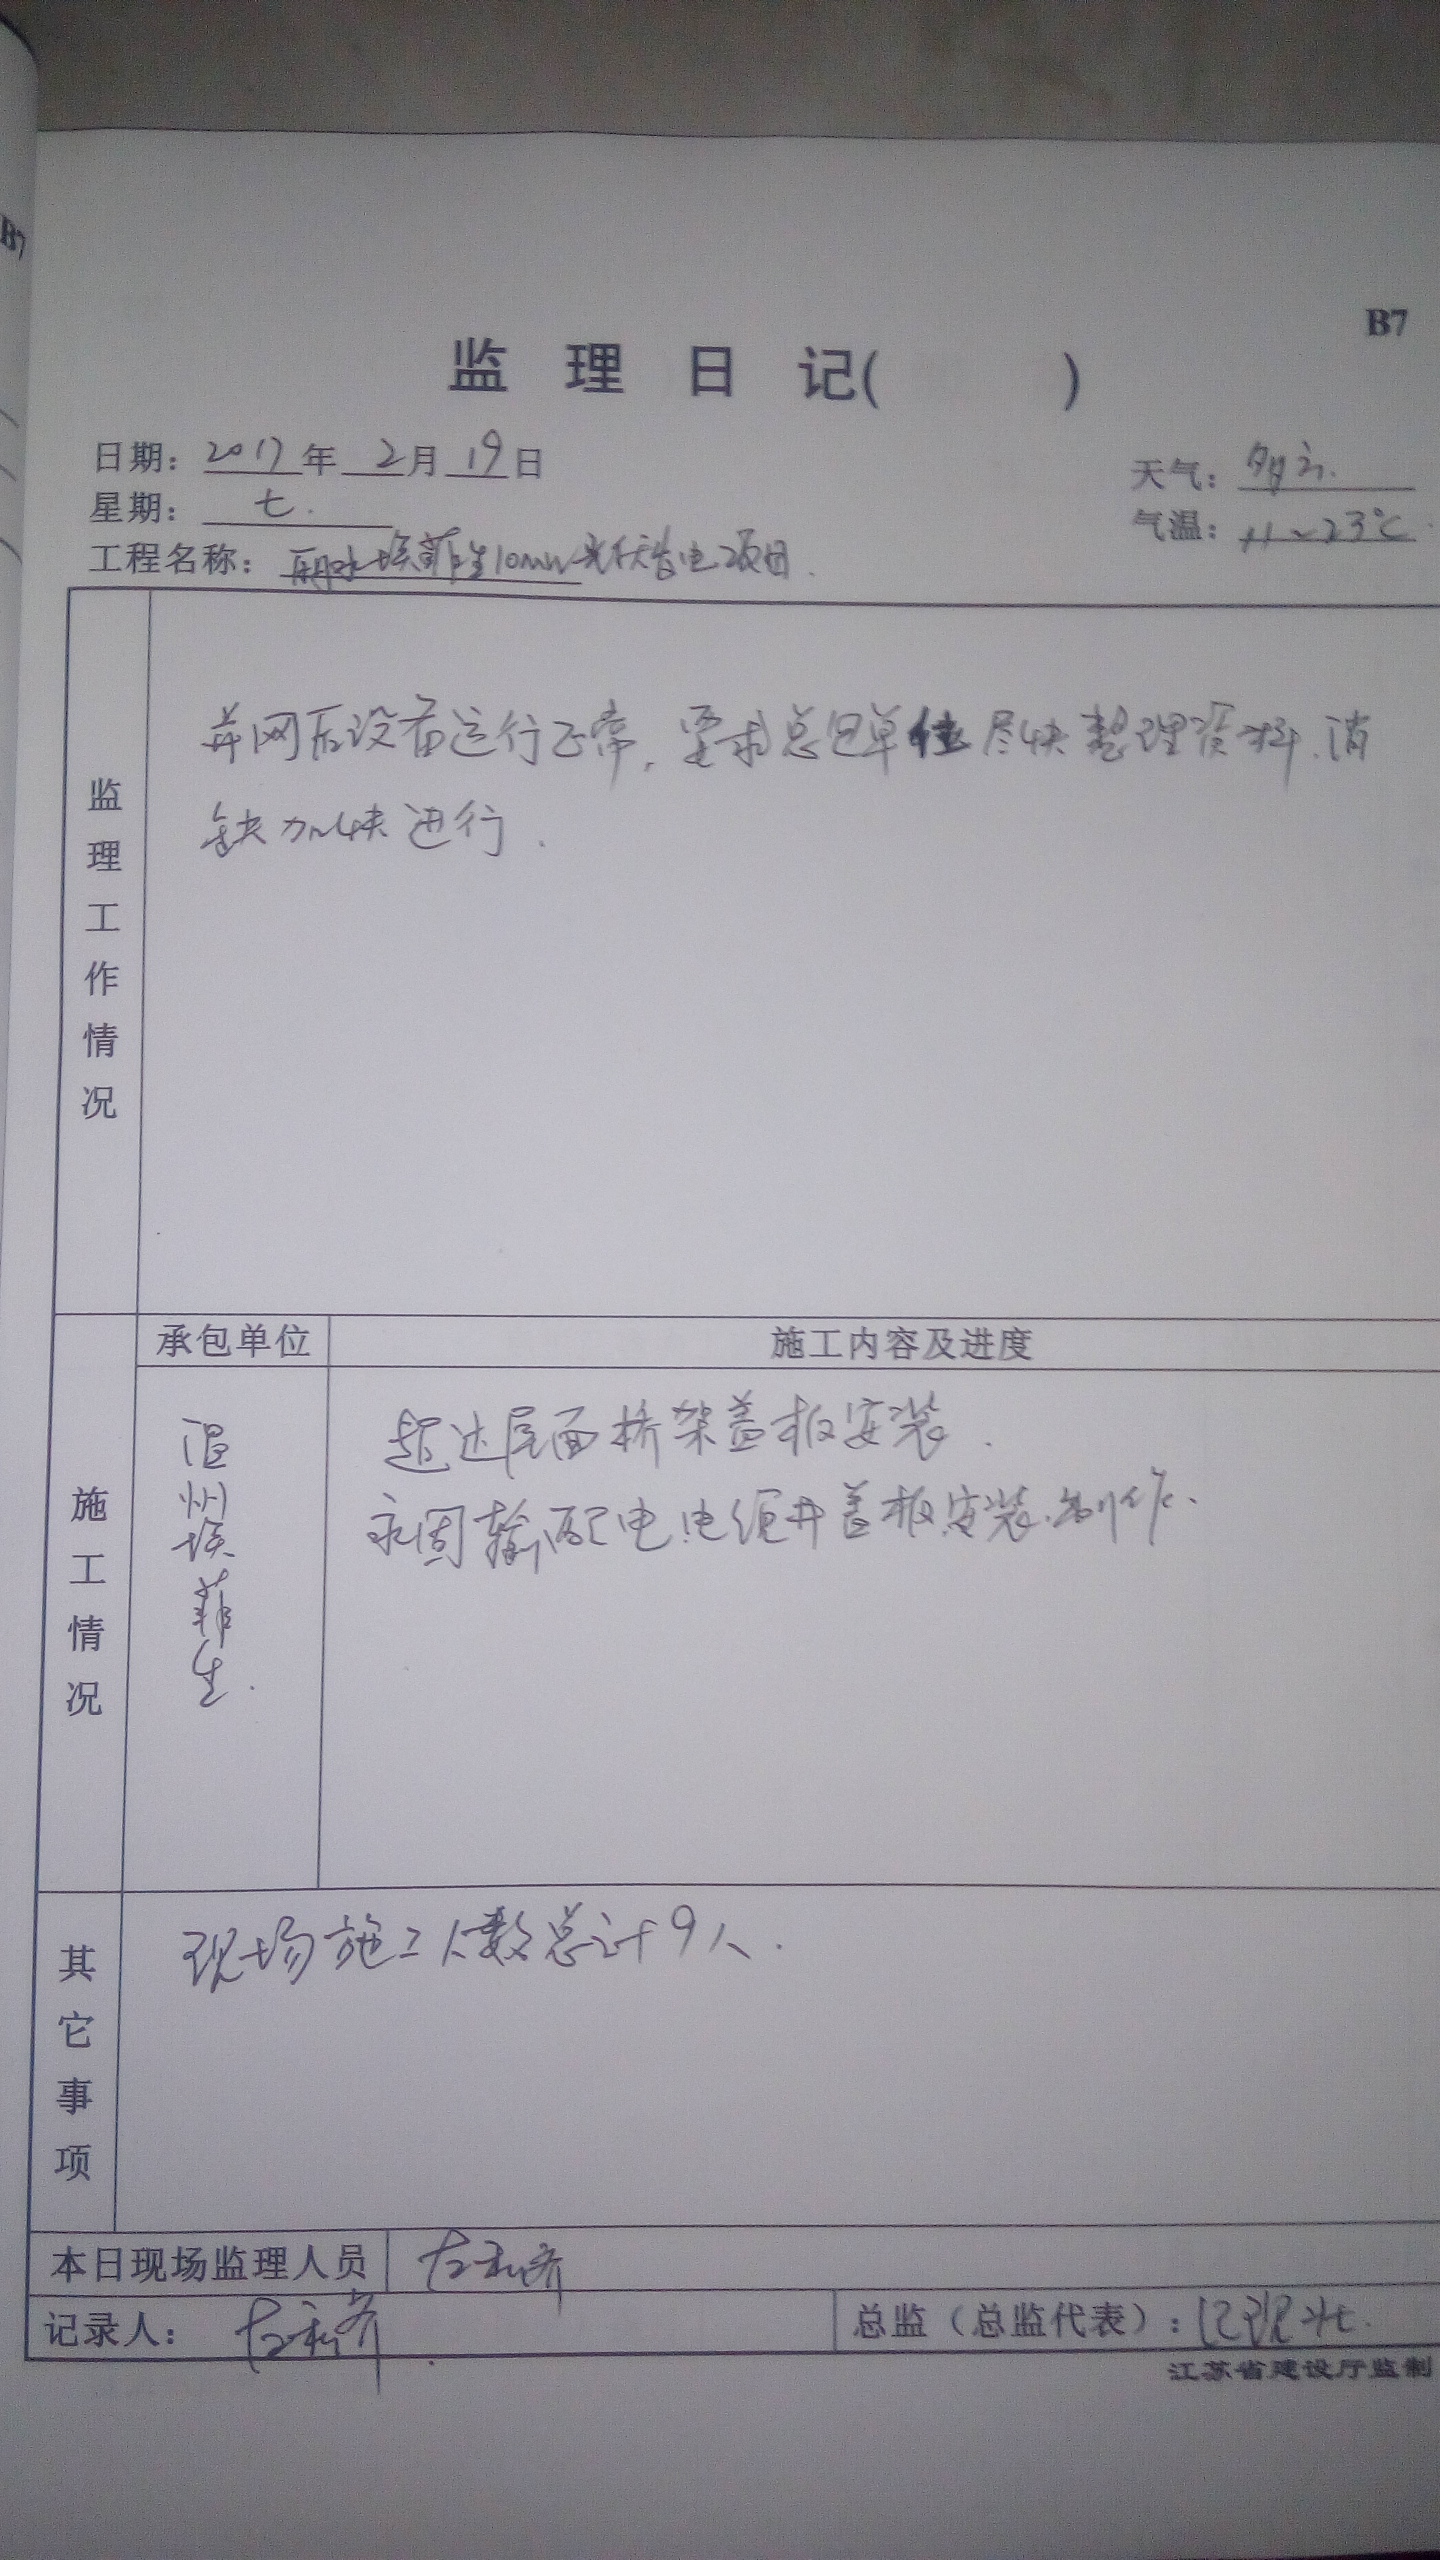 B7
B7
监 理 日 记( )
日期：2017年2月19日
天气：多云.
星期：七.
气温：11~23℃.
工程名称：丽水埃菲生10MW光伏发电项目.
监理工作情况
并网后设备运行正常，要求总包单位尽快整理资料.消
缺加快进行.
施工情况
承包单位
施工内容及进度
温州埃菲生.
超达屋面桥架盖板安装.
永固输配电电缆井盖板安装.制作.
其它事项
现场施工人数总计9人.
本日现场监理人员
记录人：
总监（总监代表）：
江苏省建设厅监制